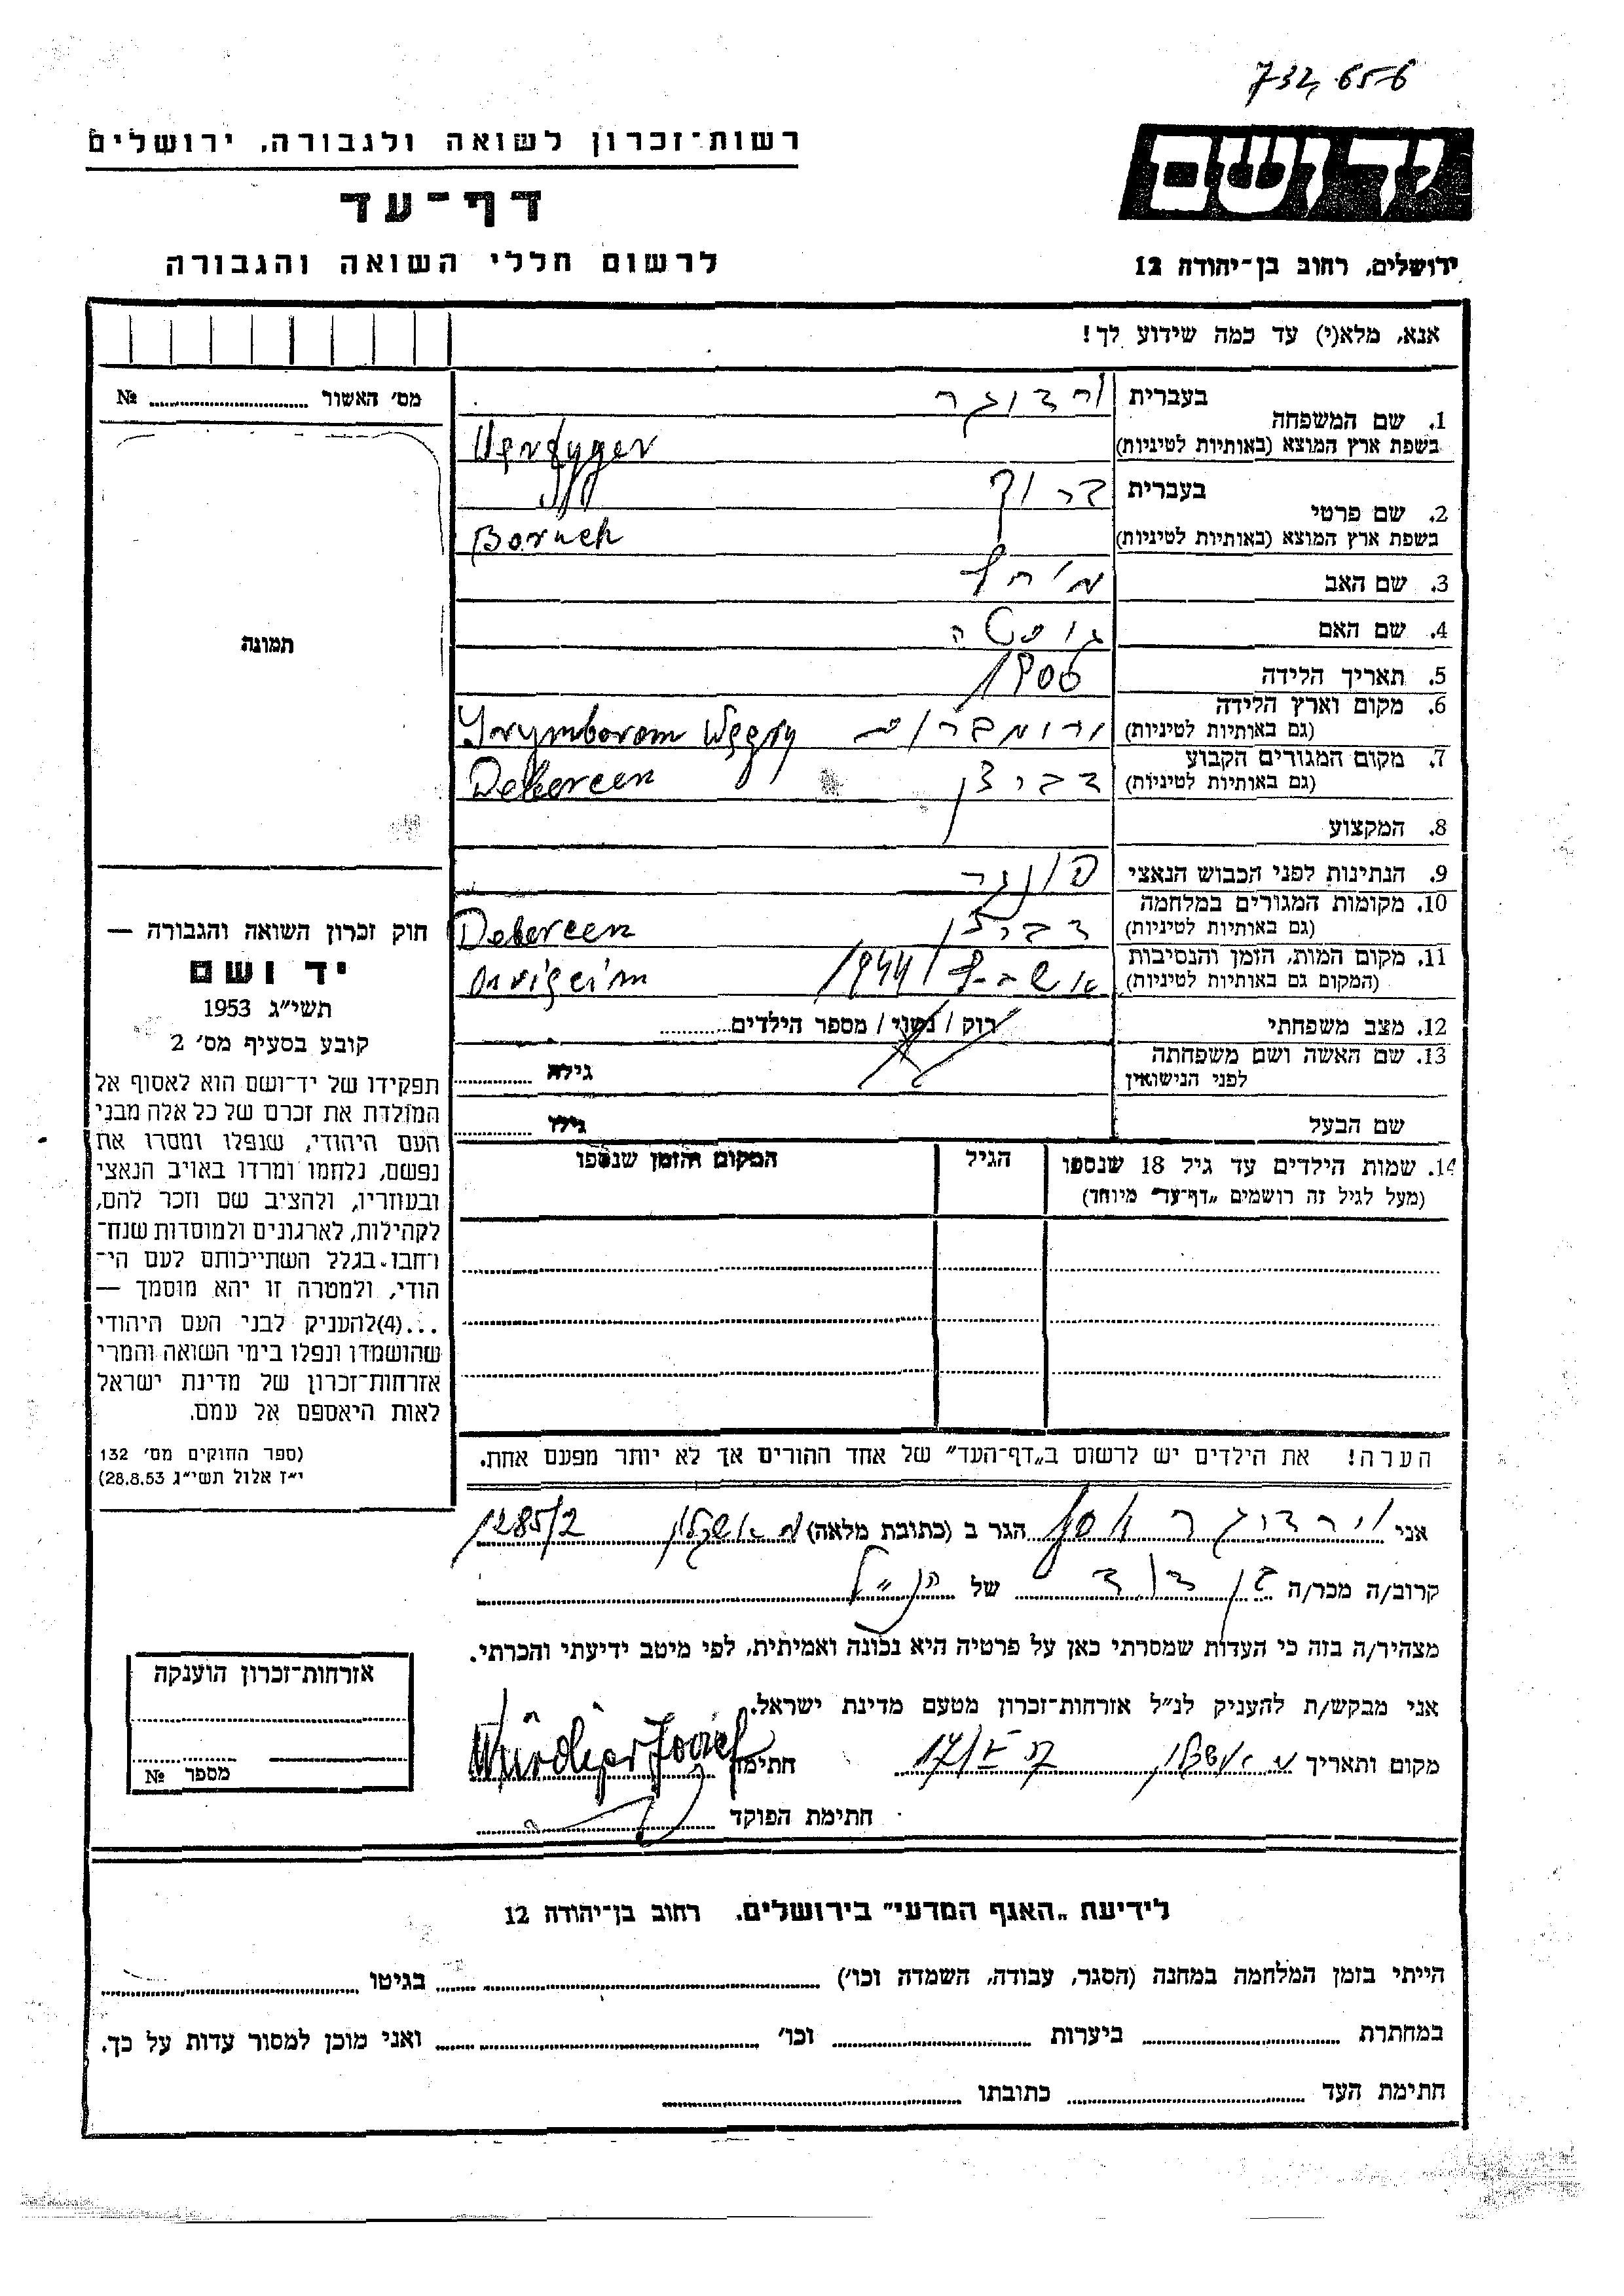 732,656
רשות־זכרון לשואה ולגבורה, ירושלים
יד ושם
דף־עד
לרשום חללי השואה והגבורה
ירושלים, רחוב בן־יהודה 12
אנא, מלא(י) עד כמה שידוע לך!
מס' האשור № 
1. שם המשפחה
בעברית ורדוגר
בשפת ארץ המוצא (באותיות לטיניות)
2. שם פרטי
בעברית ברוך
בשפת ארץ המוצא (באותיות לטיניות) Boruch
3. שם האב
4. שם האם
5. תאריך הלידה 1906
6. מקום וארץ הלידה
(גם באותיות לטיניות) Węgry
7. מקום המגורים הקבוע
(גם באותיות לטיניות) דברצן Debereen
8. המקצוע
9. הנתינות לפני הכבוש הנאצי הונגר
10. מקומות המגורים במלחמה
(גם באותיות לטיניות) דברצן Debereen
11. מקום המות, הזמן והנסיבות
(המקום גם באותיות לטיניות) 1944
12. מצב משפחתי רוק / נשוי / מספר הילדים
13. שם האשה ושם משפחתה
לפני הנישואין גילה
שם הבעל גילו
14. שמות הילדים עד גיל 18 שנספו
(מעל לגיל זה רושמים „דף־עד" מיוחד)
הגיל
המקום והזמן שנספו
תמונה
חוק זכרון השואה והגבורה —
יד ושם
תשי"ג 1953
קובע בסעיף מס' 2
תפקידו של יד־ושם הוא לאסוף אל
המולדת את זכרם של כל אלה מבני
העם היהודי, שנפלו ומסרו את
נפשם, נלחמו ומרדו באויב הנאצי
ובעוזריו, ולהציב שם וזכר להם,
לקהילות, לארגונים ולמוסדות שנח־
רחבו בגלל השתייכותם לעם הי־
הודי, ולמטרה זו יהא מוסמך —
...(4)להעניק לבני העם היהודי
שהושמדו ונפלו בימי השואה והמרי
אזרחות־זכרון של מדינת ישראל
לאות היאספם אל עמם.
(ספר החוקים מס' 132
י"ז אלול תשי"ג 28.8.53)
הערה! את הילדים יש לרשום ב„דף־העד" של אחד ההורים אך לא יותר מפעם אחת.
אני וירדוגר יוסף הגר ב (כתובת מלאה) אשקלון 1285/2
קרוב/ה מכר/ה בן דוד של הנ"ל
מצהיר/ה בזה כי העדות שמסרתי כאן על פרטיה היא נכונה ואמיתית, לפי מיטב ידיעתי והכרתי.
אני מבקש/ת להעניק לנ"ל אזרחות־זכרון מטעם מדינת ישראל.
מקום ותאריך אשקלון חתימה Józef
חתימת הפוקד
אזרחות־זכרון הוענקה
מספר №
לידיעת „האגף המדעי" בירושלים, רחוב בן־יהודה 12
הייתי בזמן המלחמה במחנה (הסגר, עבודה, השמדה וכו') בגיטו
במחתרת ביערות וכו' ואני מוכן למסור עדות על כך.
חתימת העד כתובתו